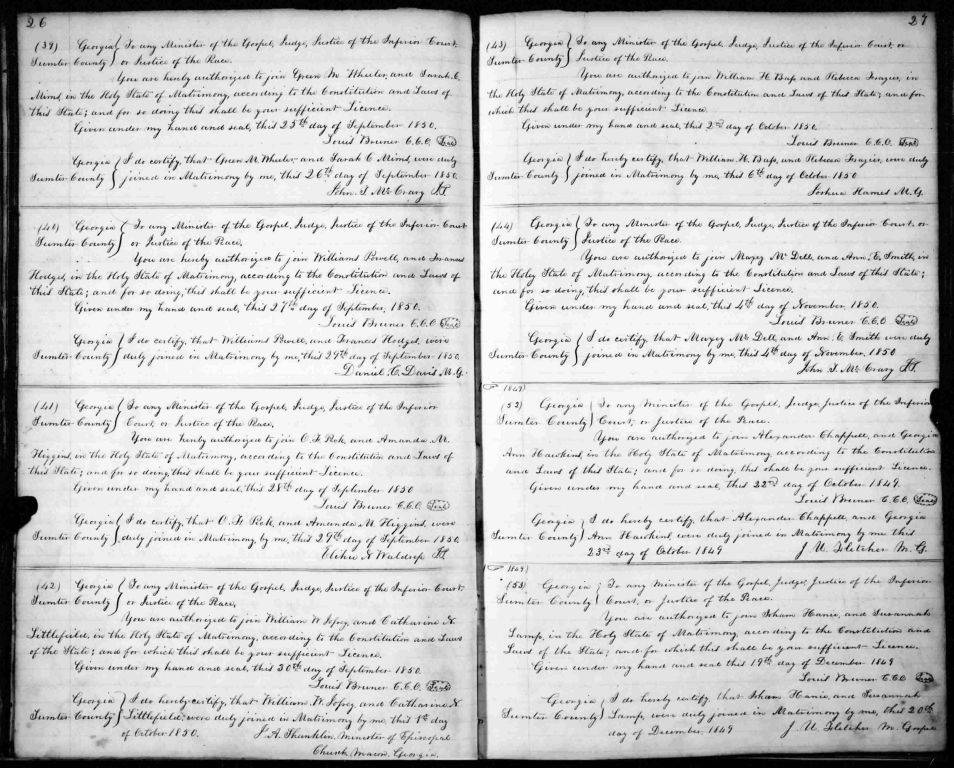 26
(39) Georgia To any Minister of the Gospel, Judge, Justice of the Inferior Court,
Sumter County or Justice of the Peace.
You are hereby authorized to join Green M. Wheeler, and Sarah C.
Mims, in the Holy State of Matrimony, according to the Constitution and Laws of
this State; and for so doing this shall be your sufficient Licence.
Given under my hand and seal, this 25th day of September 1850.
Louis Bruner C.C.O. Seal
Georgia I do certify, that Green M. Wheeler, and Sarah C. Mims, were duly
Sumter County joined in Matrimony by me, this 26th day of September 1850.
John J. McCrary
(40) Georgia To any Minister of the Gospel, Judge, Justice of the Inferior Court
Sumter County or Justice of the Peace.
You are hereby authorized to join Williams Powell, and Frances
Hodges, in the Holy State of Matrimony, according to the Constitution and Laws of
this State; and for so doing, this shall be your sufficient Licence.
Given under my hand and seal, this 27th day of September, 1850.
Louis Bruner C.C.O Seal
Georgia I do certify, that Williams Powell, and Frances Hodges, were
Sumter County duly joined in Matrimony by me, this 29th day of September 1850.
Daniel C. Davis M.G.
(41) Georgia To any Minister of the Gospel, Judge, Justice of the Inferior
Sumter County Court, or Justice of the Peace,
You are hereby authorized to join O. F. and Amanda M.
Higgins, in the Holy State of Matrimony, according to the Constitution and Laws of
this State; and for so doing this shall be your sufficient Licence.
Given under my hand and seal, this 28th day of September 1850
Louis Bruner C.C.O. Seal
Georgia I do certify, that O. F. and Amanda M. Higgins, were
Sumter County duly joined in Matrimony, by me, this 29th day of September 1850.
Waldrop
(42) Georgia To any Minister of the Gospel, Judge, Justice of the Inferior Court,
Sumter County or Justice of the Peace,
You are authorized to join William W. and Catharine N.
Littlefield, in the Holy State of Matrimony, according to the Constitution and Laws
of the State; and for which this shall be your sufficient Licence.
Given under my hand and seal, this 30th day of September 1850.
Louis Bruner C.C.O. Seal
Georgia I do hereby certify, that William W. and Catharine N.
Sumter County Littlefield, were duly joined in Matrimony by me, this 1st day
of October 1850. J. A. Shanklin, Minister of Episcopal
Church Macon, Georgia.
27
(43) Georgia To any Minister of the Gospel, Judge, Justice of the Inferior Court, or
Sumter County Justice of the Peace.
You are authorized to join William H. Bass and Rebecca Frazier, in
the Holy State of Matrimony, according to the Constitution and Laws of this State; and for
which this shall be your sufficient Licence.
Given under my hand and seal, this 2nd day of October 1850.
Louis Bruner C.C.O. Seal
Georgia I do hereby certify, that William H. Bass, and Rebecca Frazier, were duly
Sumter County joined in Matrimony by me, this 6th day of October 1850
Joshua Hames M.G.
(44) Georgia To any Minister of the Gospel, Judge, Justice of the Inferior Court, or
Sumter County Justice of the Peace.
You are authorized to join Maxey McDell, and Ann, C. Smith, in
the Holy State of Matrimony, according to the Constitution and Laws of this State;
and for so doing, this shall be your sufficient Licence.
Given under my hand and seal, this 4th day of November, 1850.
Louis Bruner C.C.O Seal
Georgia I do certify, that Maxey McDell, and Ann, C. Smith were duly
Sumter County joined in Matrimony by me, this 4th day of November, 1850
John J. McCrary
(1849)
(52) Georgia To any Minister of the Gospel, Judge, Justice of the Inferior
Sumter County Court, or Justice of the Peace.
You are authorized to join Alexander Chappell, and Georgia
Ann Hawkins, in the Holy State of Matrimony, according to the Constitution
and Laws of this State; and for so doing, this shall be your sufficient Licence.
Given under my hand and seal, this 22nd day of October 1849.
Louis Bruner C.C.O. Seal
Georgia I do hereby certify, that Alexander Chappell, and Georgia
Sumter County Ann Hawkins, were duly joined in Matrimony by me this
23rd day of October 1849 J. U. Fletcher M.G.
(1849)
(53) Georgia To any Minister of the Gospel, Judge, Justice of the Inferior
Sumter County Court, or Justice of the Peace.
You are authorized to join Isham Hanie, and Susannah
Lamp, in the Holy State of Matrimony, according to the Constitution and
Laws of the State; and for which this shall be your sufficient Licence.
Given under my hand and seal this 19th day of December 1849
Louis Bruner C.C.O Seal
Georgia I do hereby certify, that Isham Hanie, and Susannah
Sumter County Lamp, were duly joined in Matrimony by me, this 20th
day of December, 1849 J. U. Fletcher M. Gospel